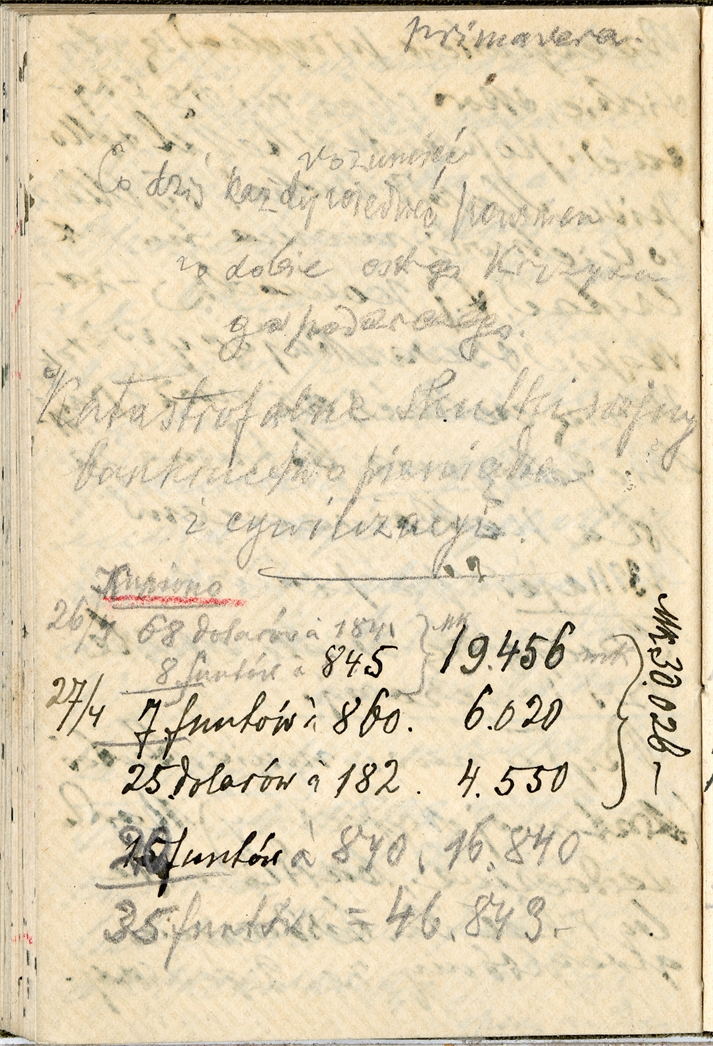 primavera.
rozumieć
Co dziś każdy wiedzieć powinien
w dobie ostrego Kryzysu
gospodarczego.
Katastrofalne skutki wojny
bankructwo pieniądza
i cywilizacyi.
Kupiono
26/4 68 dolarów à 184 Mk
8 funtów à 845 19.456 mk
27/4 7 funtów à 860. 6.020
25 dolarów à 182. 4.550
Mk 30.026 –
15 funtów à 840. 16.840
35 funtów = 46.843.-